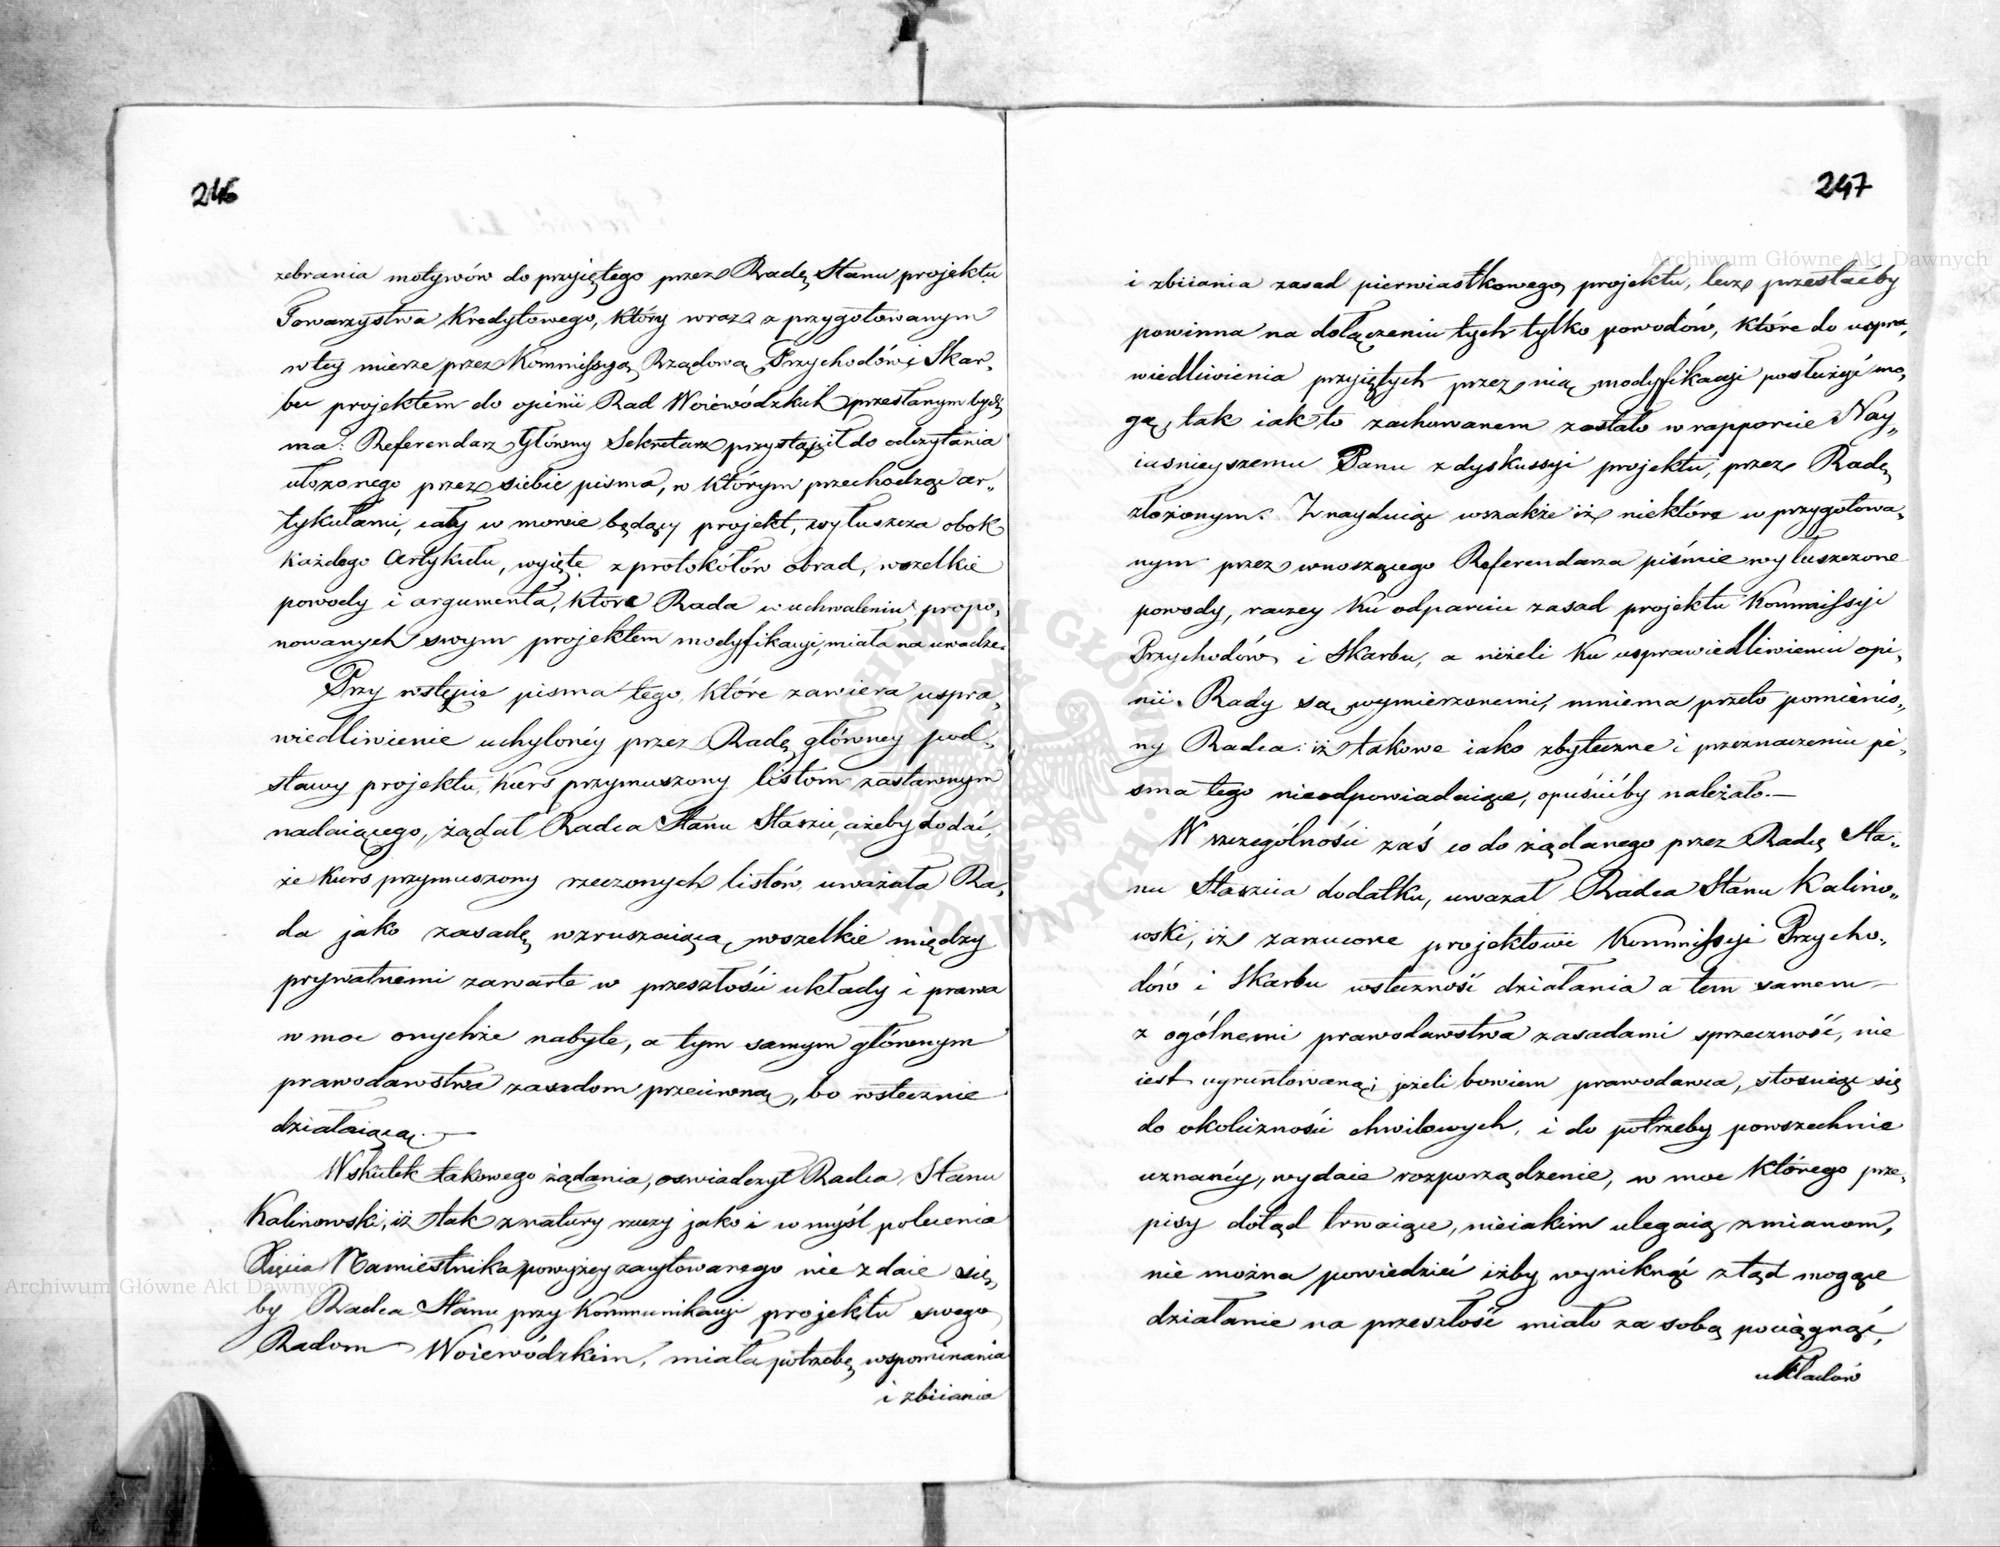 246
zebrania motywów do przyiętego przez Radę Stanu projektu
Towarzystwa Kredytowego, który wraz z przygotowanym
w tey mierze przez Kommissyą Rządową Przychodów i Skar„
bu projektem do opinii Rad Woiewódzkich przesłanym bydź
ma: Referendarz Główny Sekretarz przystąpił do odczytania
ułożonego przez siebie pisma, w którym przechodząc ar„
tykułami, cały w mowie będący projekt, wyłuszcza obok
każdego Artykułu, wyięte z protokółów obrad, wszelkie
powody i argumenta, które Rada w uchwaleniu propo„
nowanych swym projektem modyfikacyi, miała na uwadze.
Przy wstępie pisma tego, które zawiera uspra„
wiedliwienie uchylonéy przez Radę główney pod„
stawy projektu, kurs przymuszony listom zastawnym
nadaiącego, żądał Radca Stanu Staszic, ażeby dodać,
że kurs przymuszony rzeczonych listów uważała Ra„
da jako zasadę wzruszaiącą wszelkie między
prywatnemi zawarte w przeszłości układy i prawa
w moc onychże nabyte, a tym samym głównym
prawodawstwa zasadom przeciwną, bo wstecznie
działaiącą. —
Wskutek takowego żądania, oswiadczył Radca Stanu
Kalinowski, iż tak z natury rzeczy jako i w myśl polecenia
Xięcia Namiestnika powyżey zacytowanego nie zdaie się,
by Radca Stanu przy kommunikacyi projektu swego
Radom Woiewódzkim, miała potrzebę wspominania
i zbiiania
247
i zbiiania zasad pierwiastkowego projektu, lecz przestaćby
powinna na dołączeniu tych tylko powodów, które do uspra„
wiedliwienia przyiętych przez nią modyfikacyi posłużyć mo„
gą, tak iak to zachowanem zostało w rapporcie Nay„
iaśnieyszemu Panu z dyskussyi projektu, przez Radę
złożonym. Znayduiąc wszakże iż niektóre w przygotowa„
nym przez wnoszącego Referendarza piśmie wyłuszczone
powody, raczey ku odparciu zasad projektu Kommissyi
Przychodów i Skarbu, a niżeli ku usprawiedliwieniu opi„
nii Rady są wymierzonemi, mniema przeto pomienio„
ny Radca: iż takowe iako zbyteczne i przeznaczeniu pi„
sma tego nieodpowiadaiące, opuścićby należało. —
W szczególności zaś co do żądanego przez Radcę Sta„
nu Staszica dodatku, uważał Radca Stanu Kalino„
wski, iż zarzucone projektowi Kommissyi Przycho„
dów i Skarbu wsteczność działania a tem samem —
z ogólnemi prawodawstwa zasadami sprzeczność, nie
iest ugruntowaną; jeżeli bowiem prawodawca, stosuiąc się
do okoliczności chwilowych, i do potrzeby powszechnie
uznanéy, wydaie rozporządzenie, w moc którego prze„
pisy dotąd trwaiące, nieiakim ulegaią zmianom,
nie można powiedzieć iżby wyniknąć ztąd mogące
działanie na przeszłość miało za sobą pociągnąć,
układów
Archiwum Główne Akt Dawnych
Archiwum Główne Akt Dawnych